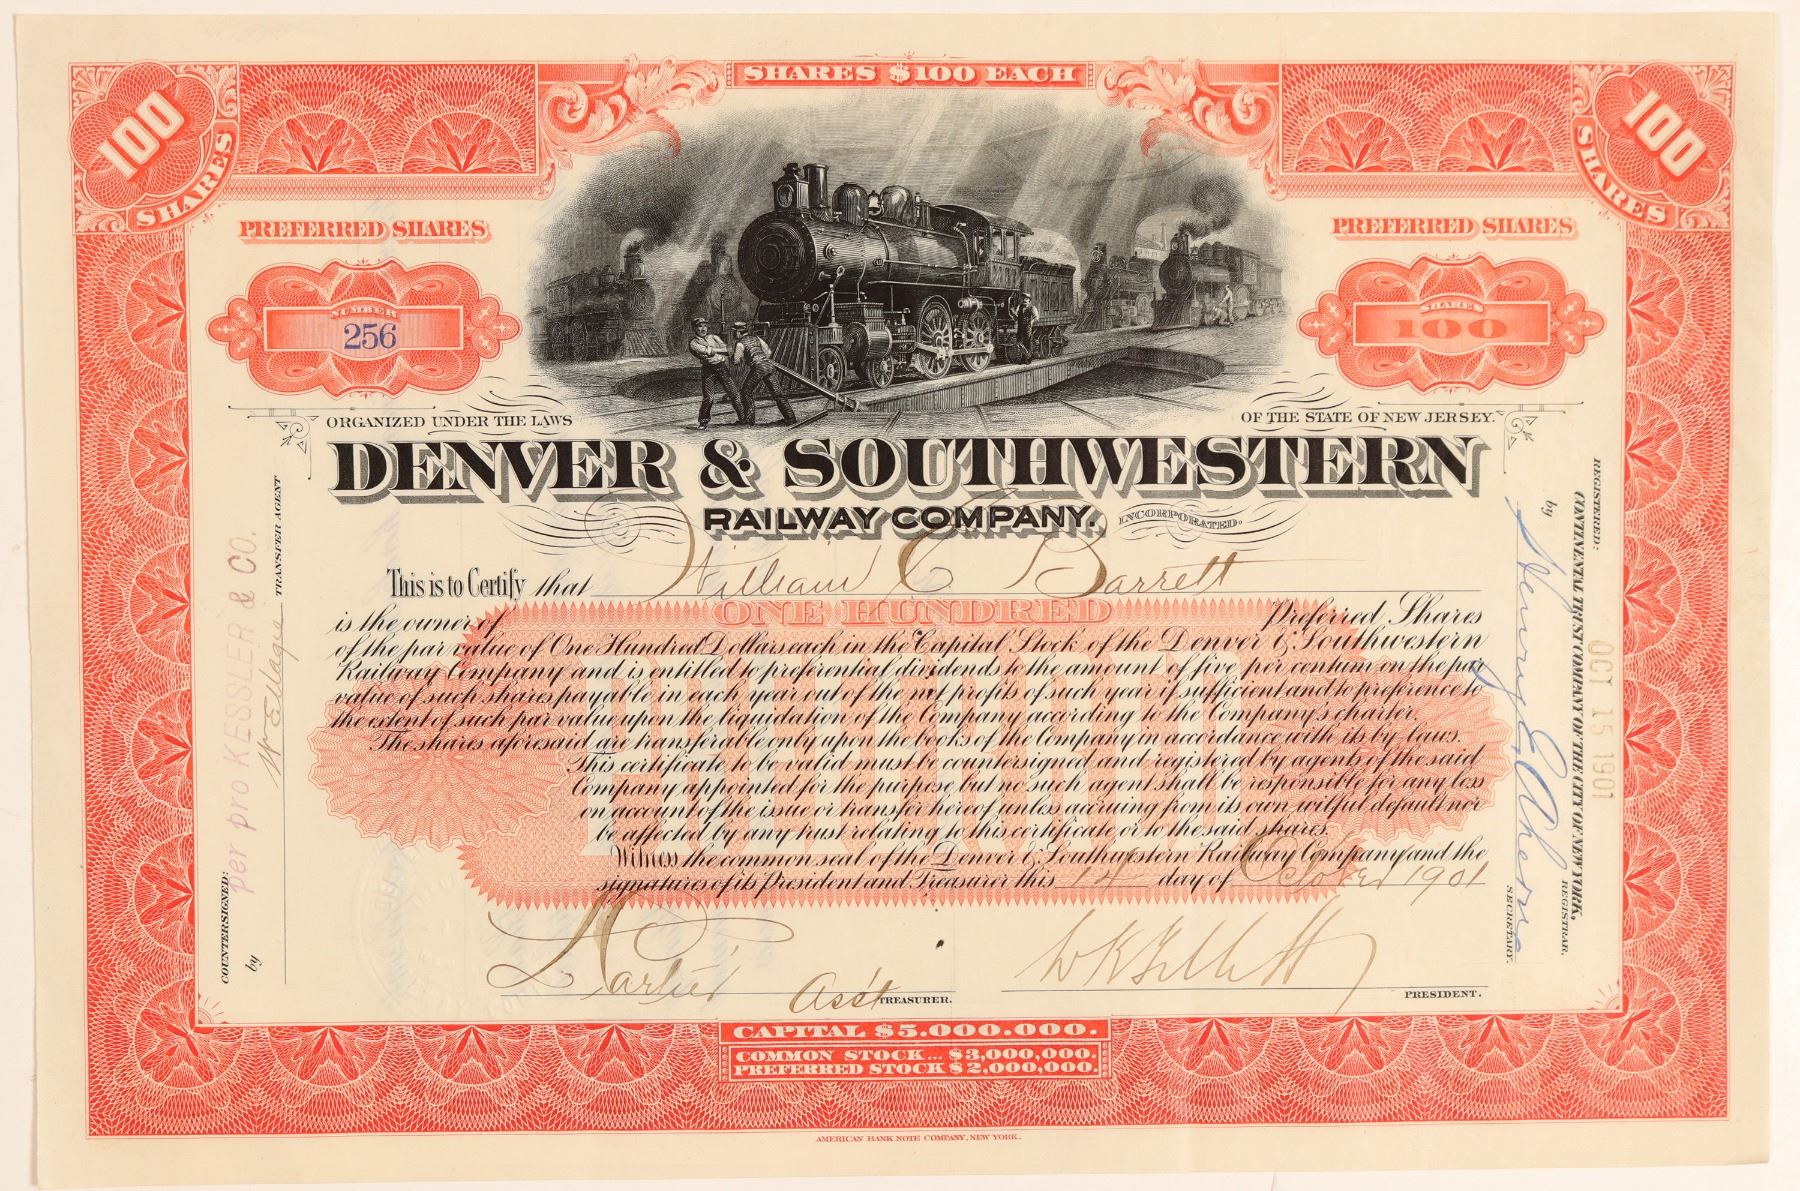 SHARES $100 EACH
100
SHARES
100
SHARES
PREFERRED SHARES
PREFERRED SHARES
NUMBER
256
SHARES
100
ORGANIZED UNDER THE LAWS
OF THE STATE OF NEW JERSEY.
DENVER & SOUTHWESTERN
RAILWAY COMPANY.
INCORPORATED.
This is to Certify that William C Barrett
is the owner of ONE HUNDRED Preferred Shares
of the par value of One Hundred Dollars each in the Capital Stock of the Denver & Southwestern
Railway Company and is entitled to preferential dividends to the amount of five per centum on the par
value of such shares payable in each year out of the net profits of such year if sufficient and to preference to
the extent of such par value upon the liquidation of the Company according to the Company's charter.
The shares aforesaid are transferable only upon the books of the Company in accordance with its by-laws.
This certificate to be valid must be countersigned and registered by agents of the said
Company appointed for the purpose, but no such agent shall be responsible for any loss
on account of the issue or transfer hereof unless accruing from its own wilful default nor
be affected by any trust relating to this certificate or to the said shares.
Witness the common seal of the Denver & Southwestern Railway Company and the
signatures of its President and Treasurer this 14 day of October 1901
Ass't TREASURER.
PRESIDENT.
COUNTERSIGNED:
per pro KESSLER & CO.
by
TRANSFER AGENT
REGISTERED:
CONTINENTAL TRUST COMPANY OF THE CITY OF NEW YORK,
REGISTRAR,
by Henry E
SECRETARY.
OCT 15 1901
CAPITAL $5.000.000.
COMMON STOCK... $3,000,000.
PREFERRED STOCK $2,000,000.
AMERICAN BANK NOTE COMPANY, NEW YORK.